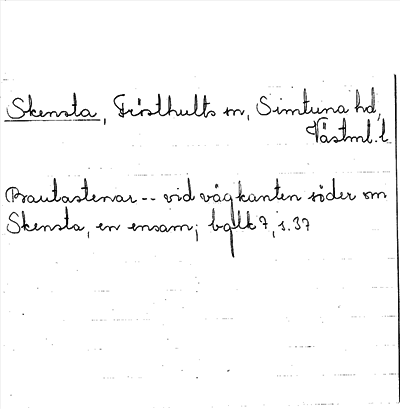 Skensta, Frösthults sn, Simtuna hd,
Västml. l.
Bautastenar -- vid vägkanten söder om
Skensta, en ensam; bglk 7, s. 37